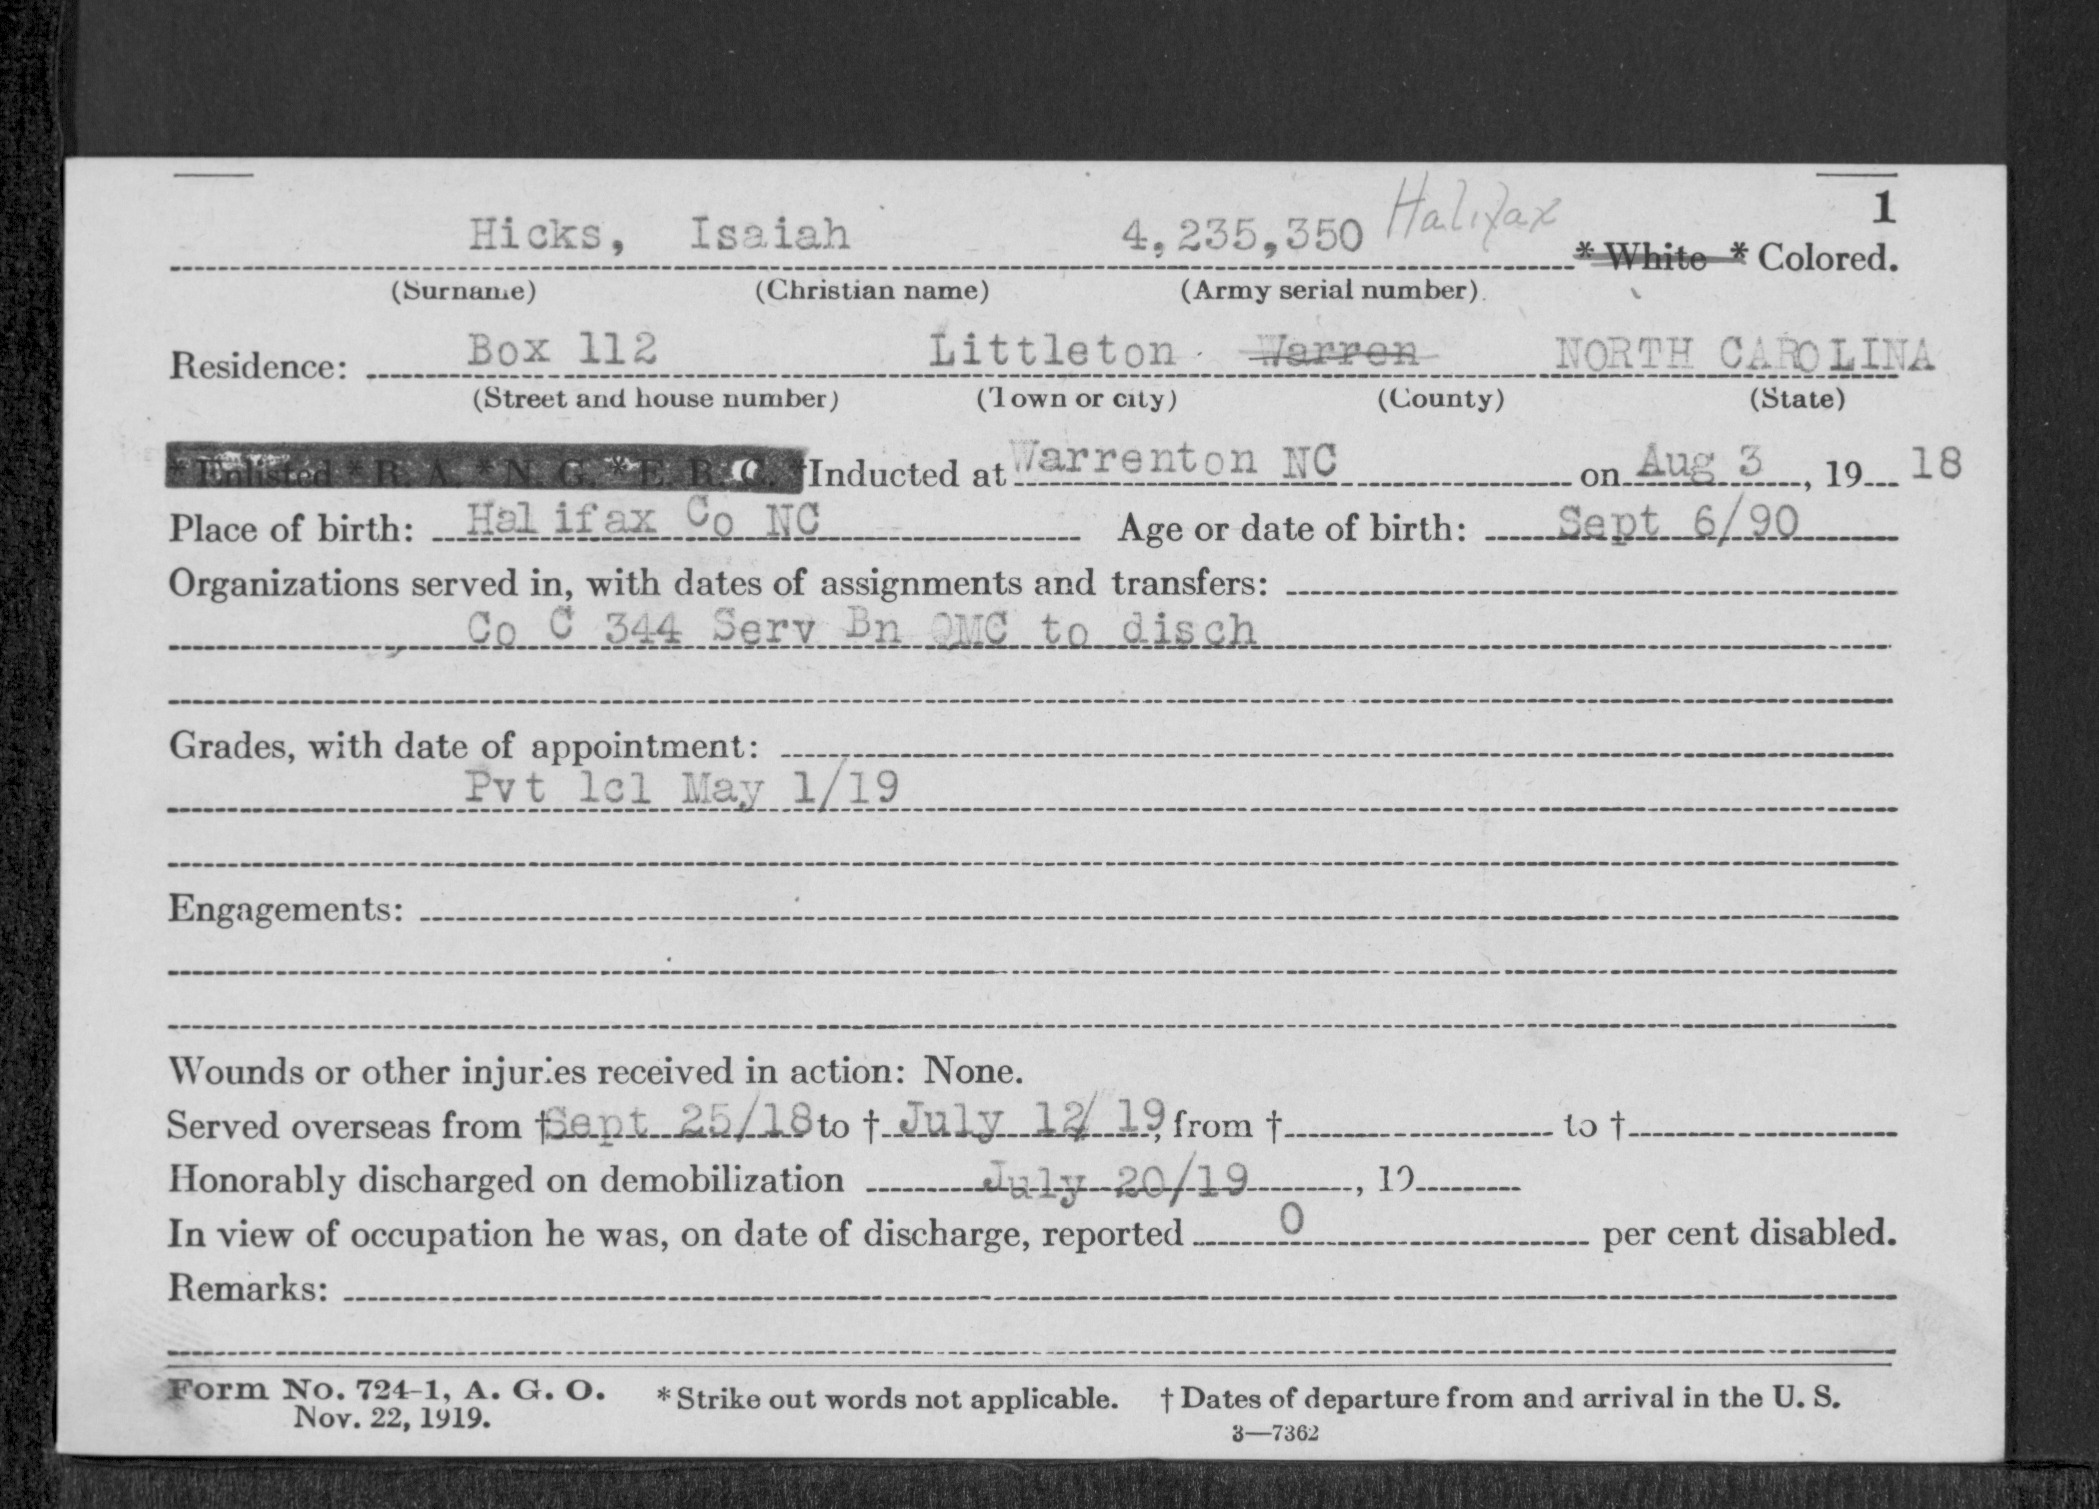 1
Hicks, Isaiah 4,235,350 Halifax * White * Colored.
(Surname) (Christian name) (Army serial number)
Residence: Box 112 Littleton Warren NORTH CAROLINA
(Street and house number) (Town or city) (County) (State)
* Enlisted * R. A. * N. G. * E. R. C. * Inducted at Warrenton NC on Aug 3, 19 18
Place of birth: Halifax Co NC Age or date of birth: Sept 6/90
Organizations served in, with dates of assignments and transfers:
Co C 344 Serv Bn QMC to disch
Grades, with date of appointment:
Pvt 1cl May 1/19
Engagements:
Wounds or other injuries received in action: None.
Served overseas from † Sept 25/18 to † July 12/19, from † to †
Honorably discharged on demobilization July 20/19, 19
In view of occupation he was, on date of discharge, reported 0 per cent disabled.
Remarks:
Form No. 724-1, A. G. O. * Strike out words not applicable. † Dates of departure from and arrival in the U. S.
Nov. 22, 1919.
3—7362